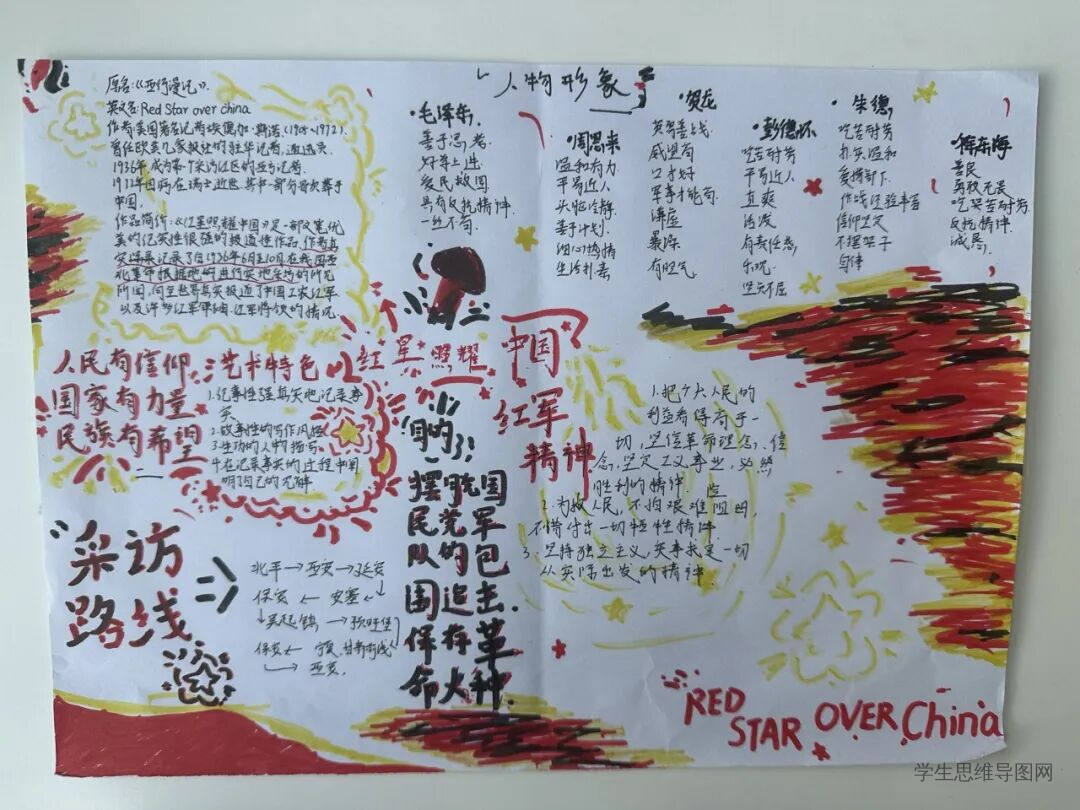 原名:《西行漫记》.
英文名: Red Star over china
作者:美国著名记者埃德加·斯诺.(1905~1972).
曾任欧美几家报社的驻华记者,
1936年,成为第一个采访红区的西方记者.
1972年因病在瑞士逝世,其中一部分骨灰葬于
中国.
作品简介:《红星照耀中国》是一部文笔优
美的纪实性很强的报道性作品,作者真
实记录了自1936年6月至10月在我国西
北革命根据地进行实地采访的所见
所闻,向全世界真实报道了中国工农红军
以及许多红军领袖、红军将领的情况.
「人物形象」
·毛泽东,
善于思考
好学上进
爱民救国
具有反抗精神.
一丝不苟.
·周恩来
温和有力
平易近人
头脑冷静
善于计划.
细心热情
生活朴素
·贺龙
英勇善战
威望高
口才好
军事才能高
谦虚
暴躁
有旺气
·彭德怀
吃苦耐劳
平易近人
直爽
活泼
有责任感,
乐观.
坚贞不屈
·朱德,
吃苦耐劳
朴实温和
爱护部下.
作战经验丰富
信仰坚定
不摆架子
自律
·徐东海
善良
勇敢无畏
吃苦耐劳.
反抗精神.
诚恳,
人民有信仰
国家有力量
民族有希望
艺术特色
1.纪事性强真实地记录事
实
2.故事性的写作风格
3.生动的人物描写
4.在记录事实的过程中阐
明了自己的见解
红星照耀
中国
红军
精神
目的
摆脱国
民党军
队的包
围追击.
保存革
命火种
1.把广大人民的
利益看得高于一
切,坚信革命理念、信
念,坚定正义事业,必然
胜利的精神.
2.为救人民,不怕艰难险阻,
不惜付出一切牺牲精神
3、坚持独立主义,实事求是一切
从实际出发的精神.
“采访
路线
北平→西安→延安
保安←安塞
吴起镇→预旺堡
保安←
→西安.
RED
STAR OVER China
学生思维导图网